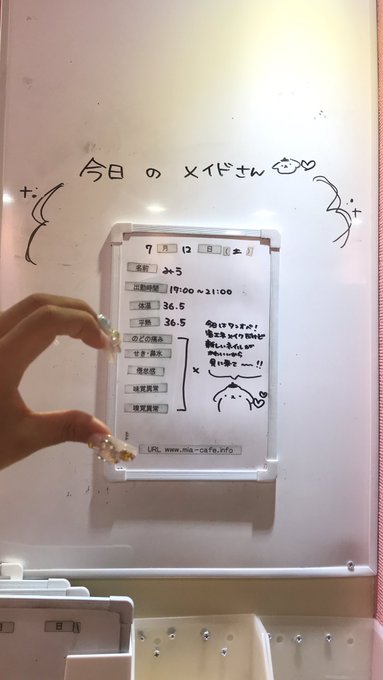 今日のメイドさん
7月12日(土)
名前 みう
出勤時間 17:00〜21:00
体温 36.5
平熱 36.5
のどの痛み
せき・鼻水
倦怠感
味覚異常
嗅覚異常
×
今日はワンオペ!
省エネメイクだけど
新しいネイルが
かわいいから
見に来て〜〜!!
URL www.mia-cafe.info
日
日